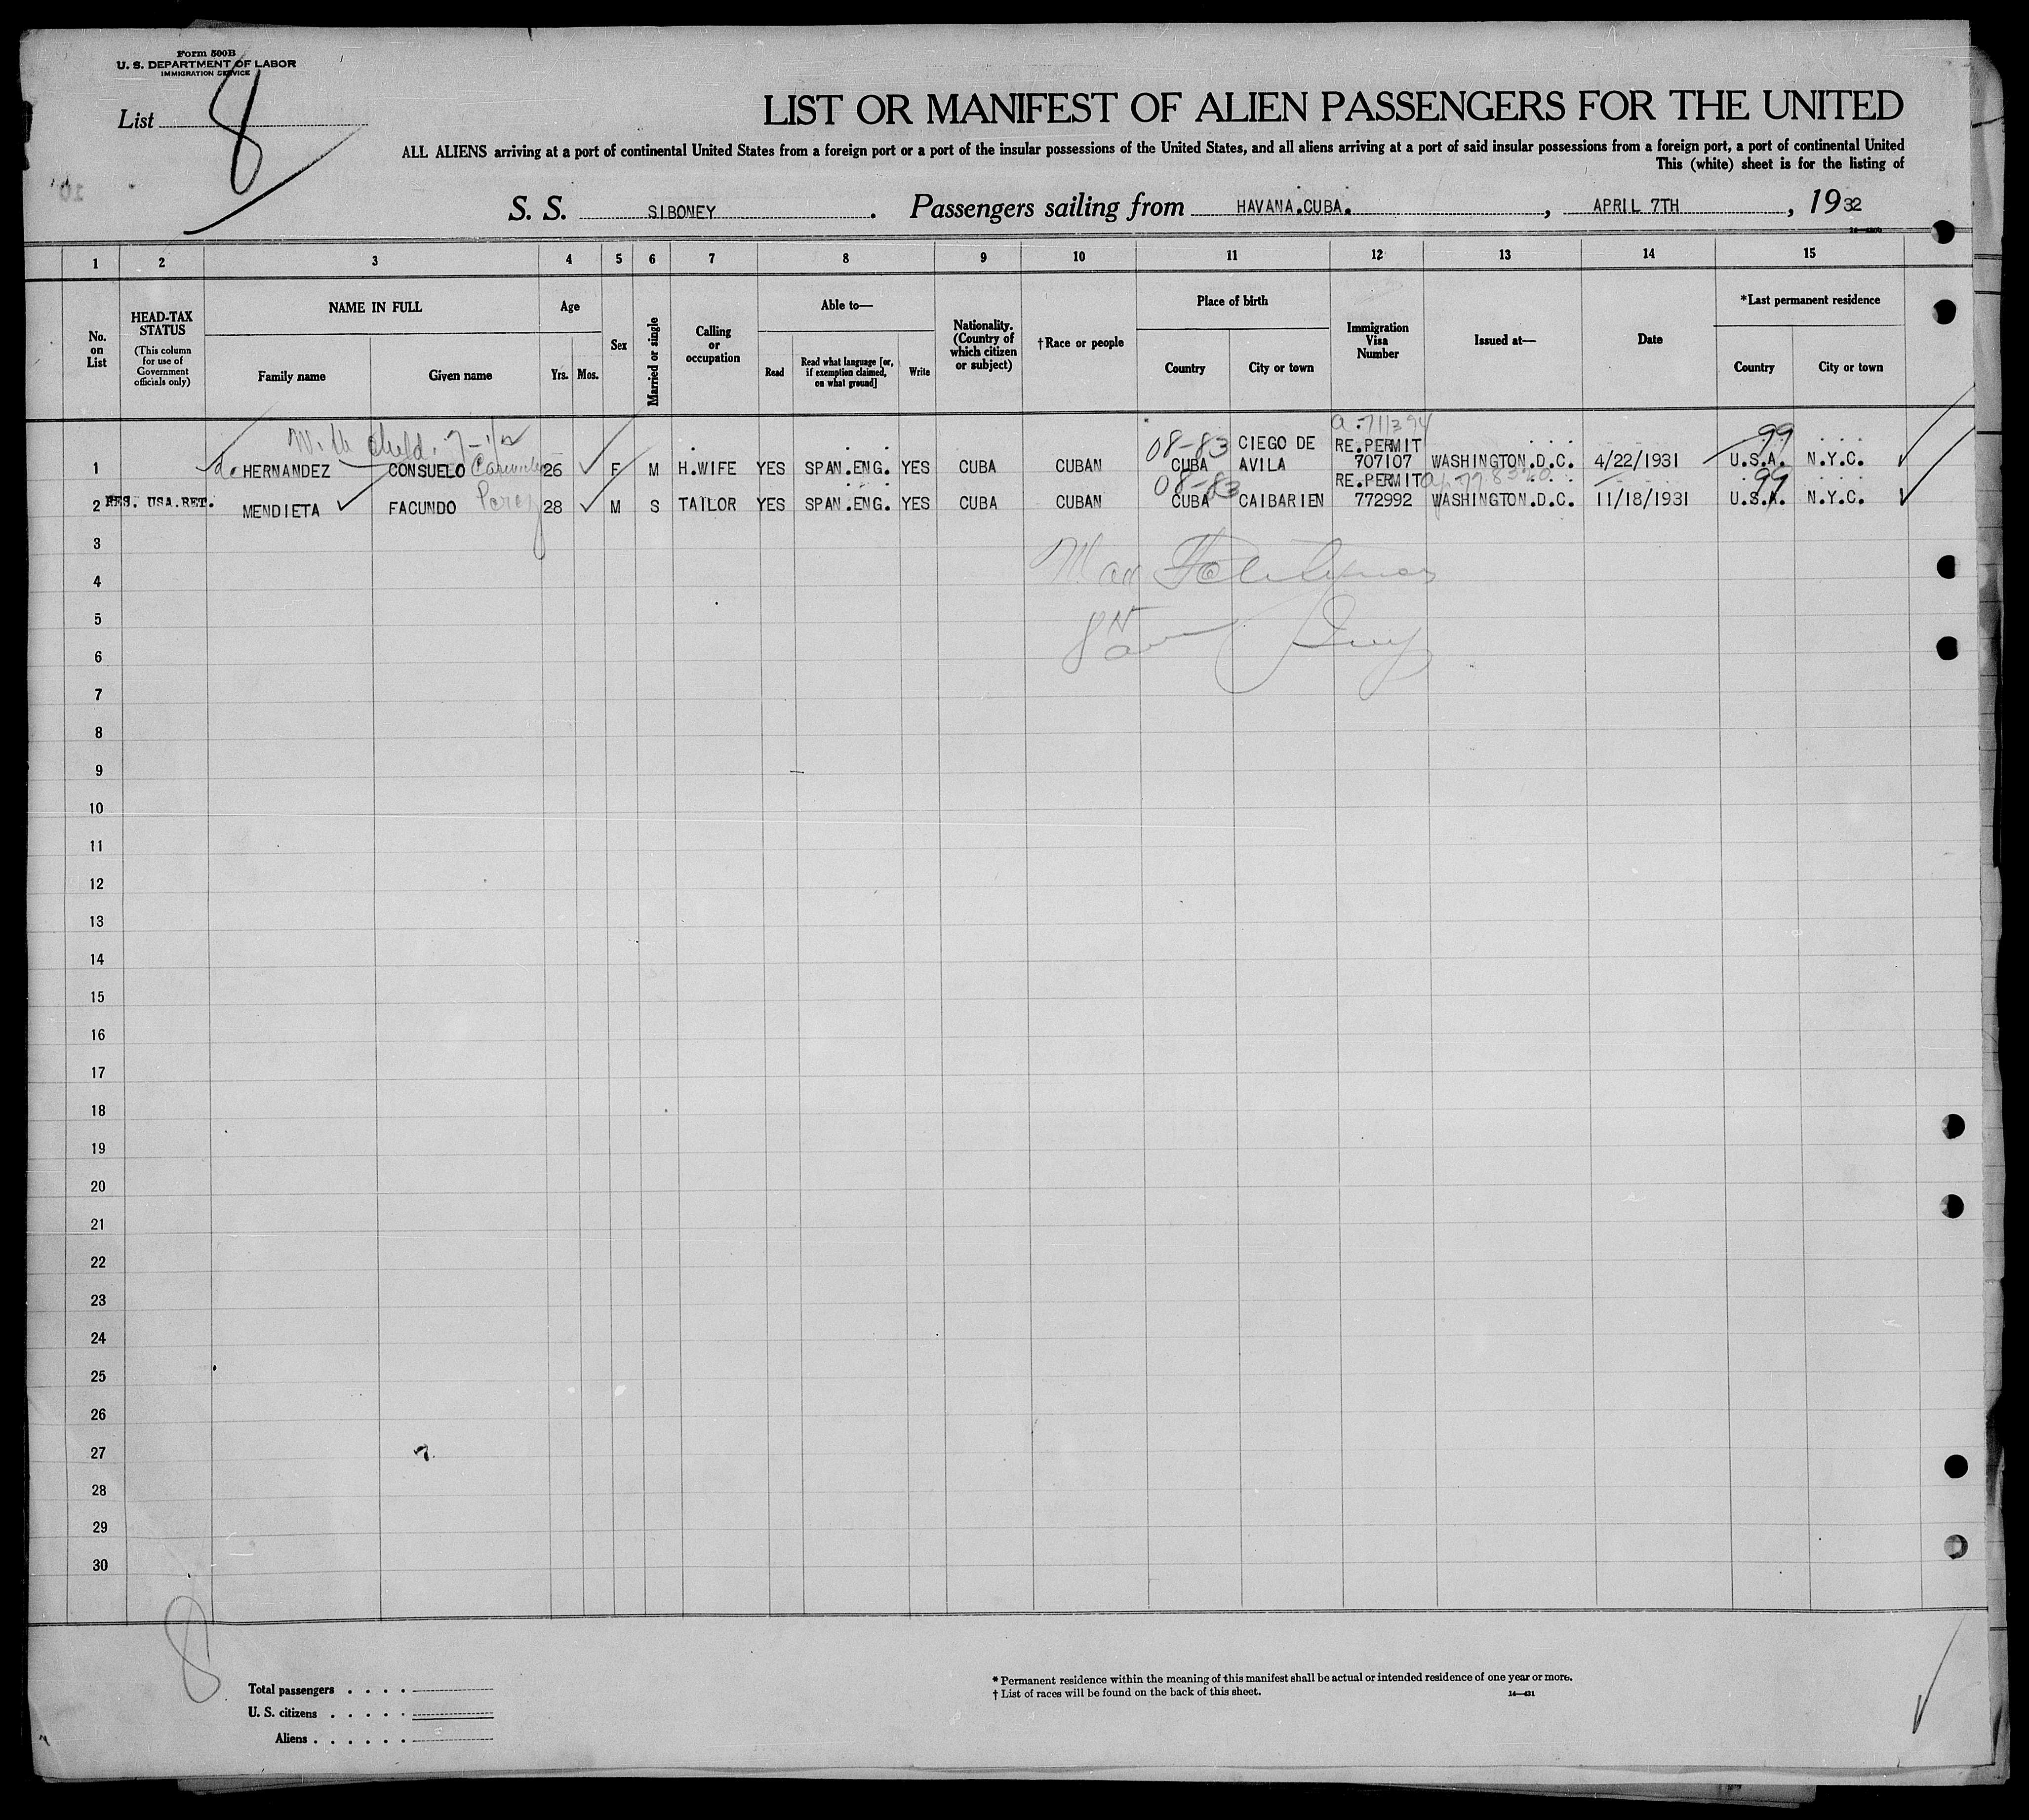 Form 500B
U. S. DEPARTMENT OF LABOR
IMMIGRATION SERVICE
List 8
LIST OR MANIFEST OF ALIEN PASSENGERS FOR THE UNITED
ALL ALIENS arriving at a port of continental United States from a foreign port or a port of the insular possessions of the United States, and all aliens arriving at a port of said insular possessions from a foreign port, a port of continental United
This (white) sheet is for the listing of
S. S. SIBONEY. Passengers sailing from HAVANA.CUBA. , APRIL 7TH , 19 32
1 2 3 4 5 6 7 8 9 10 11 12 13 14 15
No. on List
HEAD-TAX STATUS
(This column for use of Government officials only)
NAME IN FULL
Family name Given name
Age
Yrs. Mos.
Sex
Married or single
Calling or occupation
Able to—
Read
Read what language [or, if exemption claimed, on what ground]
Write
Nationality. (Country of which citizen or subject)
†Race or people
Place of birth
Country City or town
Immigration Visa Number
Issued at—
Date
*Last permanent residence
Country City or town
With child. 08-83 CIEGO DE RE.PERMIT 99
1 de HERNANDEZ CONSUELO 26 F M H.WIFE YES SPAN.ENG. YES CUBA CUBAN CUBA AVILA 707107 WASHINGTON.D.C. 4/22/1931 U.S.A. N.Y.C.
08-83 RE.PERMIT 99
2 RES. USA.RET. MENDIETA FACUNDO Perez 28 M S TAILOR YES SPAN.ENG. YES CUBA CUBAN CUBA CAIBARIEN 772992 WASHINGTON.D.C. 11/18/1931 U.S.A. N.Y.C.
3
4
5
6
7
8
9
10
11
12
13
14
15
16
17
18
19
20
21
22
23
24
25
26
27
28
29
30
8
Total passengers . . . .
U. S. citizens . . . . .
Aliens . . . . . .
* Permanent residence within the meaning of this manifest shall be actual or intended residence of one year or more.
† List of races will be found on the back of this sheet. 14—431